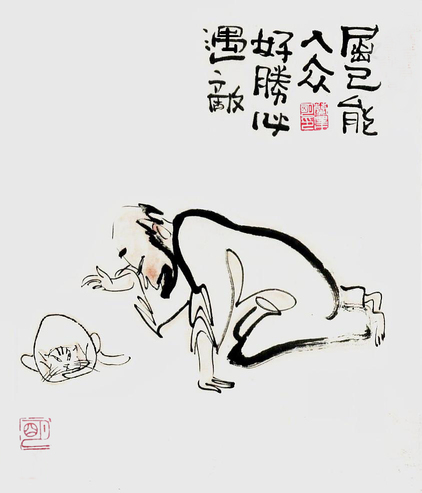 屈己能
入众
好勝必
遇敵